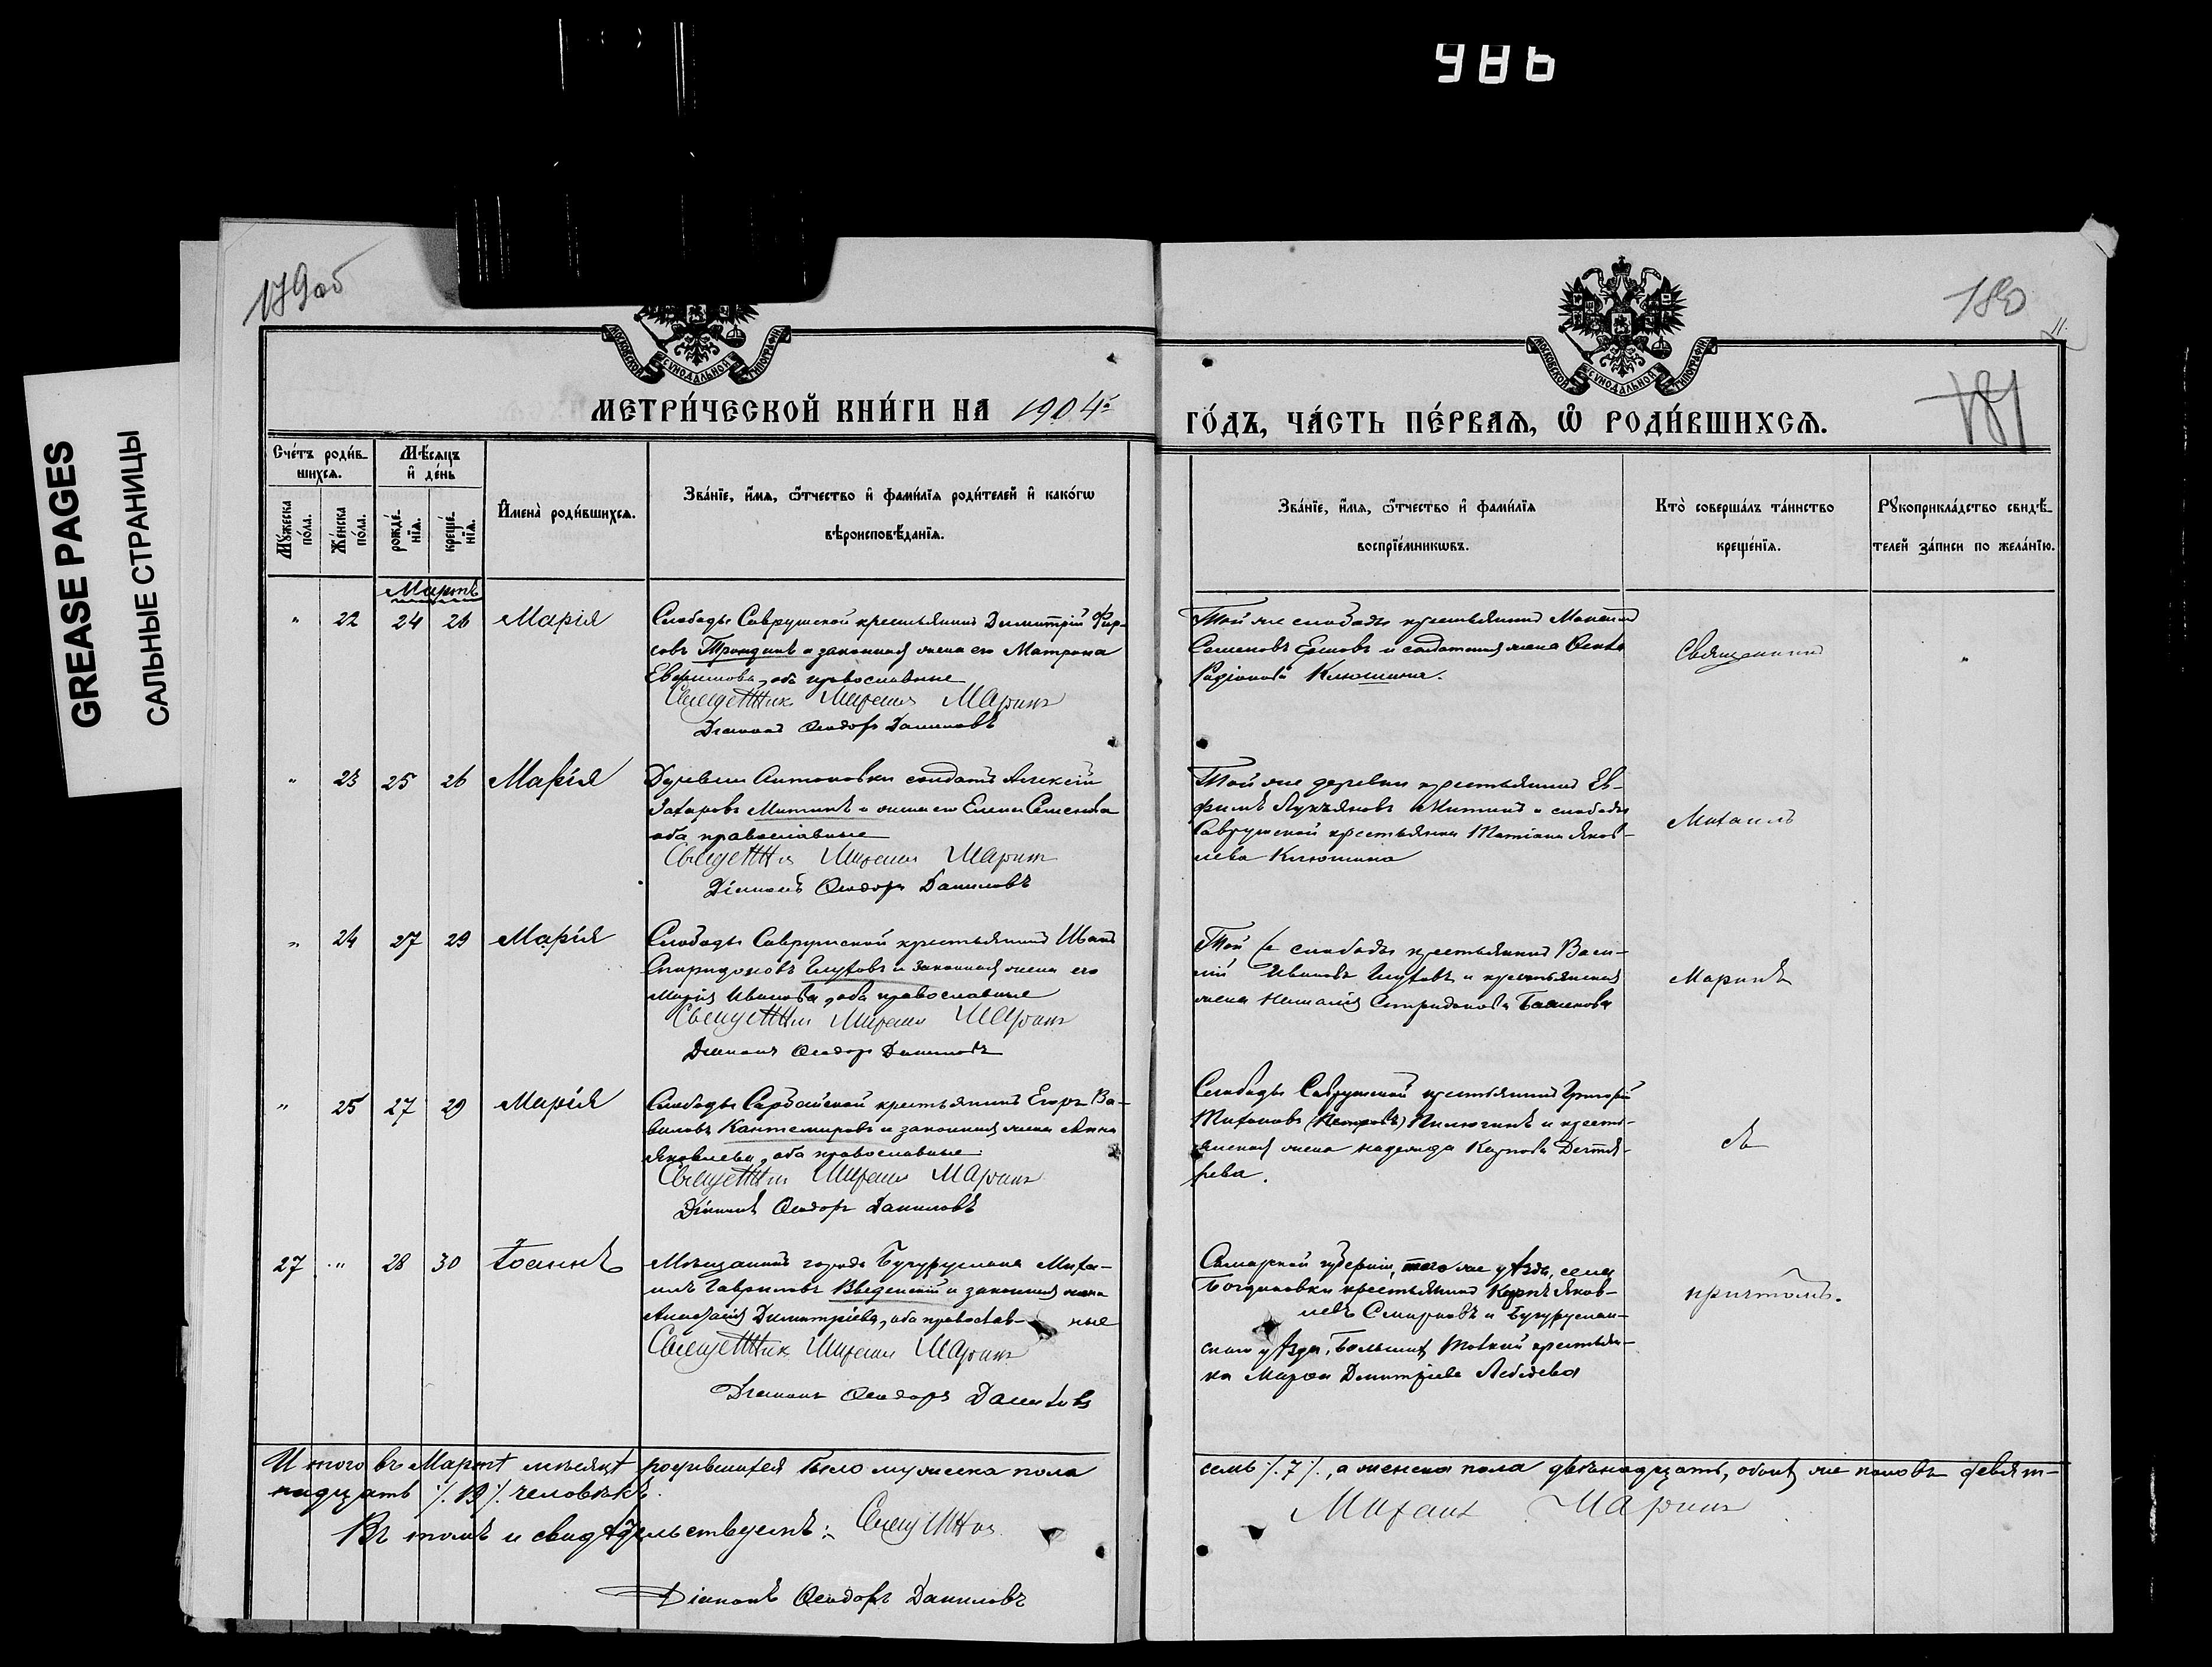 986
GREASE PAGES
САЛЬНЫЕ СТРАНИЦЫ
179 об
180
181
МОСКОВСКОЙ СѴНОДАЛЬНОЙ ТИПОГРАФІИ
МОСКОВСКОЙ СѴНОДАЛЬНОЙ ТИПОГРАФІИ
МЕТРИ́ЧЕСКОЙ КНИ́ГИ НА 1904й
ГО́ДЪ, ЧА́СТЬ ПЕ́РВАѦ, Ѽ РОДИ́ВШИХСѦ.
Сче́тъ роди́вшихсѧ.
Мꙋ́жеска по́ла.
Же́нска по́ла.
Мѣ́сѧцъ и҆ де́нь
рожде́нїѧ.
креще́нїѧ.
И҆мена̀ роди́вшихсѧ.
Зва́нїе, и҆́мѧ, ѻ҆́тчество и҆ фами́лїѧ роди́телей и҆ како́гѡ
вѣроисповѣ́данїѧ.
Зва́нїе, и҆́мѧ, ѻ҆́тчество и҆ фами́лїѧ
воспрїе́мникѡвъ.
Кто̀ соверша́лъ та́инство
креще́нїѧ.
Рꙋкоприкла́дство свидѣ́телей за́писи по жела́нїю.
Мартъ
" 22 24 26 Марія
Слободы Саврушской крестьянинъ Димитрій Фирсовъ
и законная жена его Матрона
оба православные
Священникъ Михаилъ Маринъ
Діаконъ Ѳеодоръ Даниловъ
Той же слободы крестьянинъ
Семеновъ и солдатская жена
Клюшина.
Священникъ
" 23 25 26 Марія
Деревни Антоновки солдатъ Алексій
Захаровъ Митинъ и жена его Елена Семенова
оба православные
Священникъ Михаилъ Маринъ
Діаконъ Ѳеодоръ Даниловъ
Той же деревни крестьянинъ Ев-
фимъ Лукьяновъ Митинъ и слободы
Саврушской крестьянка Татіана Яков-
лева Клюшина
Михаилъ
" 24 27 29 Марія
Слободы Саврушской крестьянинъ Иванъ
Спиридоновъ Глуховъ и законная жена его
Марія Иванова, оба православные
Священникъ Михаилъ Маринъ
Діаконъ Ѳеодоръ Даниловъ
Той же слободы крестьянинъ Васи-
лій Ивановъ Глуховъ и крестьянская
жена Наталія Спиридонова
Маринъ
" 25 27 29 Марія
Слободы Сарбайской крестьянинъ Егоръ Ва-
виловъ Кантемировъ и законная жена Анна
Яковлева, оба православные
Священникъ Михаилъ Маринъ
Діаконъ Ѳеодоръ Даниловъ
Слободы Саврушской крестьянинъ Григорій
Тихоновъ (Петровъ) Пилюгинъ и кресть-
янская жена Надежда Карпова Дегтя-
рева.
съ
27 " 28 30 Іоаннъ
Мѣщанинъ города Бугуруслана Миха-
илъ Гавриловъ Введенскій и законная жена
Анастасія Димитріева, оба православ- ные
Священникъ Михаилъ Маринъ
Діаконъ Ѳеодоръ Даниловъ
Самарской губерніи, того же уѣзда, села
Богдановки крестьянинъ Яков-
левъ Смирновъ и Бугуруслан-
скаго уѣзда, Большой Толкай крестьян-
ка Марѳа Димитріева Лебедева
причтомъ.
Итого въ Мартѣ мѣсяцѣ родившихся было мужеска пола
семь ٪7٪, а женска пола двѣнадцать, обоихъ же половъ девят-
надцать ٪19٪ человѣкъ.
Въ томъ и свидѣтельствуемъ: Священникъ
Михаилъ Маринъ
Діаконъ Ѳеодоръ Даниловъ